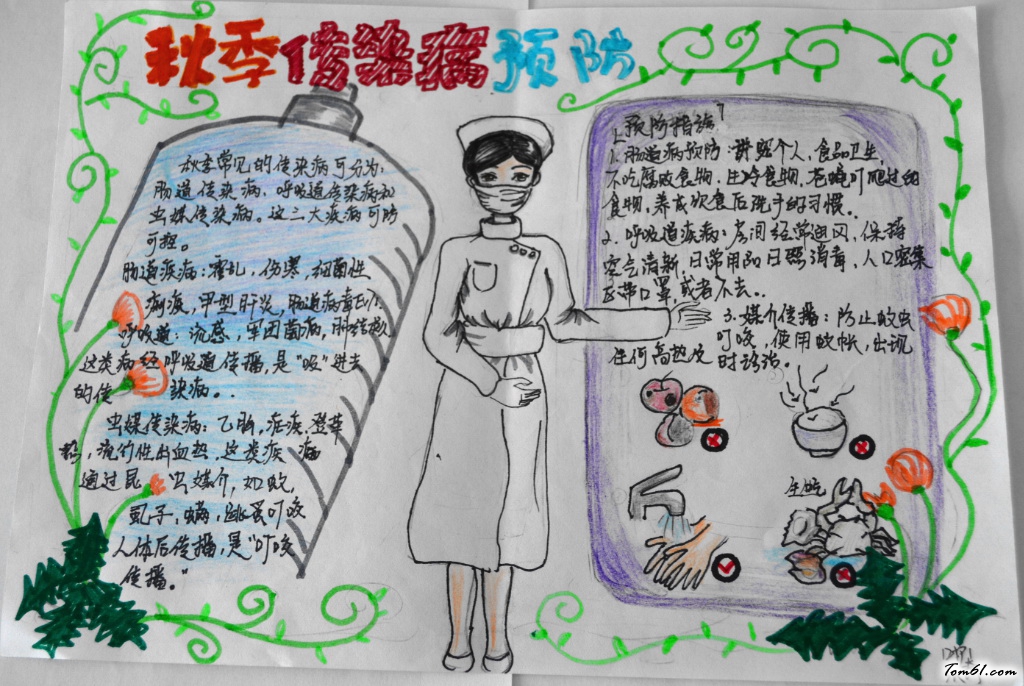 秋季传染病预防
秋季常见的传染病可分为:
肠道传染病、呼吸道传染病和
虫媒传染病。这三大疾病可防
可控。
肠道疾病:霍乱,伤寒,细菌性
痢疾,甲型肝炎,肠道病毒
呼吸道:流感,军团菌病,肺结核
这类病经呼吸道传播,是"吸"进去
的传染病。
虫媒传染病:乙脑,疟疾,登革
热,流行性出血热,这类疾病
通过昆虫媒介,如蚊,
虱子,螨,跳蚤叮咬
人体后传播,是"叮咬
传播。"
预防措施
1.肠道病预防:讲究个人,食品卫生,
不吃腐败食物,生冷食物,苍蝇叮爬过的
食物,养成饮食后洗手的习惯。
2.呼吸道疾病:房间经常通风,保持
空气清新,日常用品日照消毒,人口密集
区带口罩或者不去。
3.媒介传播:防止蚊虫
叮咬,使用蚊帐,出现
任何高热及时诊治。
生吃
Tom61.com